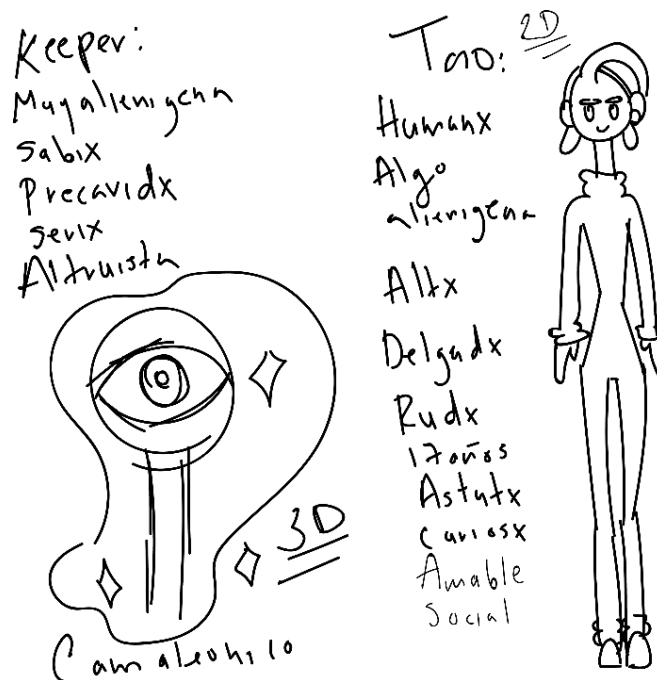 Keeper:
Muy alienigena
Sabix
Precavidx
Serix
Altruista
3D
Camaleonico
Tao:
2D
Humanx
Algo
alienigena
Altx
Delgadx
Rudx
17 años
Astutx
Curiosx
Amable
Social